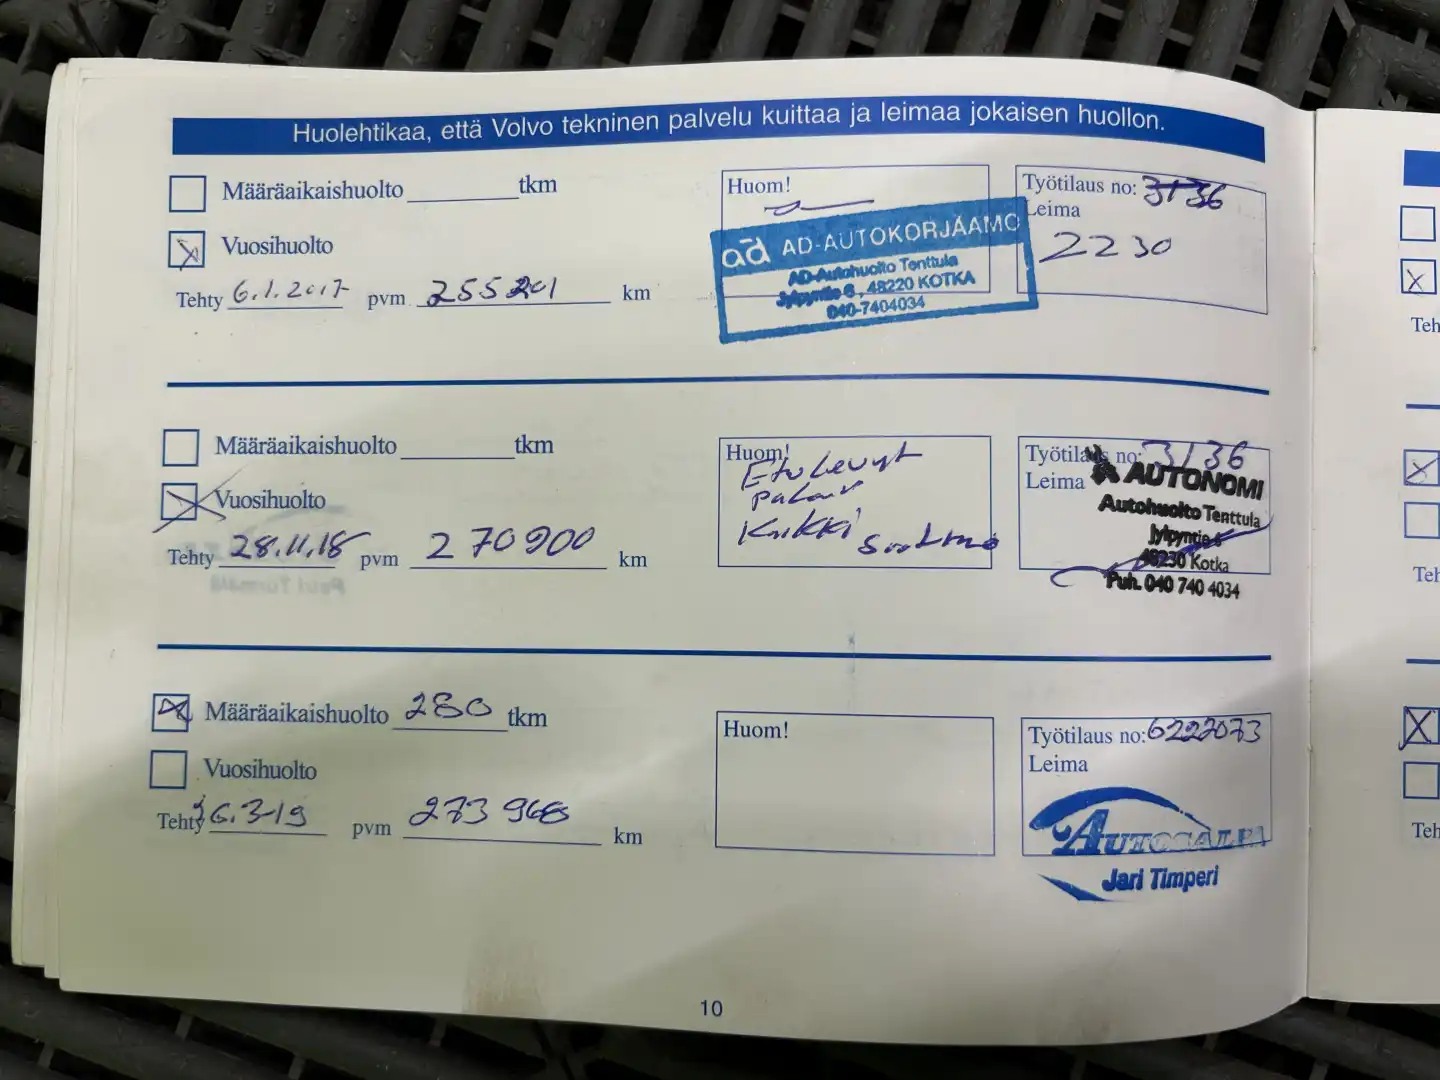 Huolehtikaa, että Volvo tekninen palvelu kuittaa ja leimaa jokaisen huollon.
Määräaikaishuolto ________ tkm
Vuosihuolto
Tehty 6.1.2017 pvm 255201 km
Huom!
ad AD-AUTOKORJAAMO
AD-Autohuolto Tenttula
Jylpyntie 6, 48220 KOTKA
040-7404034
Työtilaus no: 3136
Leima
2230
Määräaikaishuolto ________ tkm
Vuosihuolto
Tehty 28.11.18 pvm 270900 km
Huom!
Etulevyt
Kaikki
Työtilaus no: 3136
Leima
AUTONOMI
Autohuolto Tenttula
Jylpyntie 6
48230 Kotka
Puh. 040 740 4034
Määräaikaishuolto 280 tkm
Vuosihuolto
Tehty 26.3-19 pvm 273 968 km
Huom!
Työtilaus no: 6222073
Leima
AUTOSALPA
Jari Timperi
10
Teh
Teh
Teh